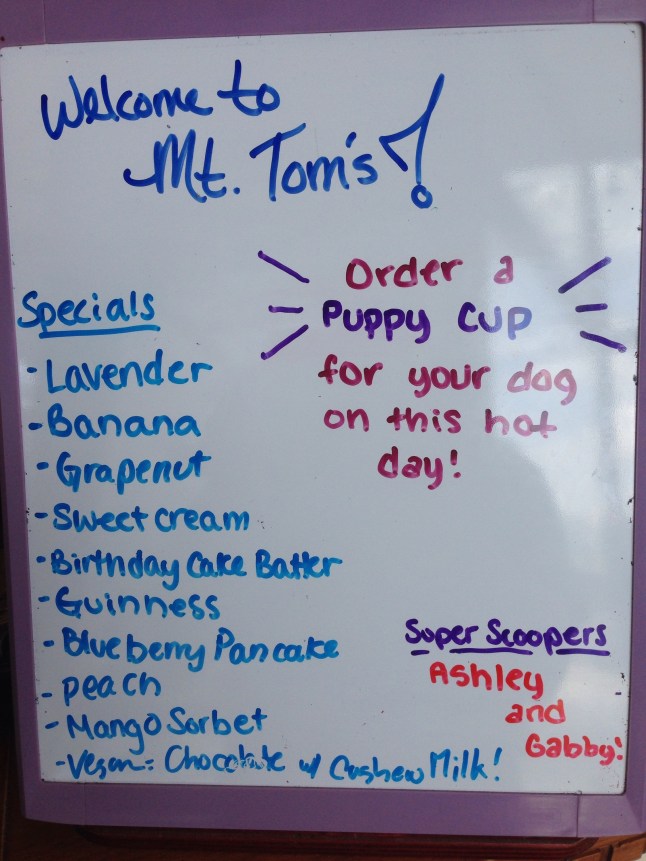 Welcome to
Mt. Tom's!
Specials
- Lavender
- Banana
- Grapenut
- Sweet cream
- Birthday Cake Batter
- Guinness
- Blueberry Pancake
- peach
- Mango Sorbet
- Vegan: Chocolate w/ Cashew Milk!
Order a
Puppy Cup
for your dog
on this hot
day!
Super Scoopers
Ashley
and
Gabby!